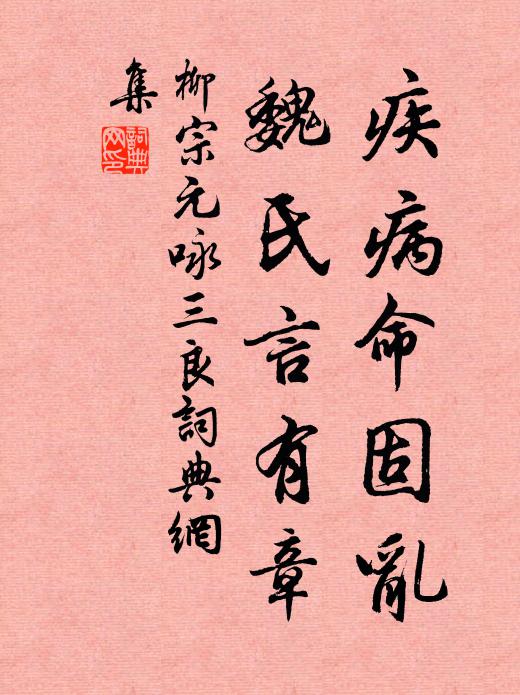 疾病命固亂
魏氏言有章
柳宗元咏三良詞典網
集
詞典网印